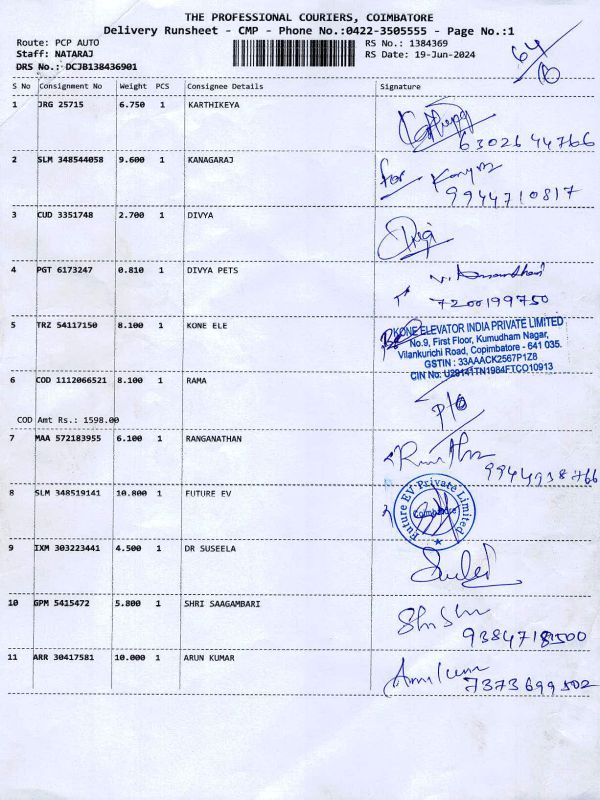 THE PROFESSIONAL COURIERS, COIMBATORE
Delivery Runsheet - CMP - Phone No.:0422-3505555 - Page No.:1
Route: PCP AUTO RS No.: 1384369
Staff: NATARAJ RS Date: 19-Jun-2024
DRS No.: DCJB138436901
64
S No Consignment No Weight PCS Consignee Details Signature
1 JRG 25715 6.750 1 KARTHIKEYA
6302644766
2 SLM 348544058 9.600 1 KANAGARAJ for
9944710817
3 CUD 3351748 2.700 1 DIVYA
4 PGT 6173247 0.810 1 DIVYA PETS
7200199750
5 TRZ 54117150 8.100 1 KONE ELE
KONE ELEVATOR INDIA PRIVATE LIMITED
No.9, First Floor, Kumudham Nagar,
Vilankurichi Road, Copimbatore - 641 035.
GSTIN : 33AAACK2567P1Z8
CIN No: U29141TN1984FTCO10913
6 COD 1112066521 8.100 1 RAMA
COD Amt Rs.: 1598.00
7 MAA 572183955 6.100 1 RANGANATHAN
9944938766
8 SLM 348519141 10.800 1 FUTURE EV
Future EV Private Limited
Coimbatore
9 IXM 303223441 4.500 1 DR SUSEELA
10 GPM 5415472 5.800 1 SHRI SAAGAMBARI
11 ARR 30417581 10.000 1 ARUN KUMAR
7373699502